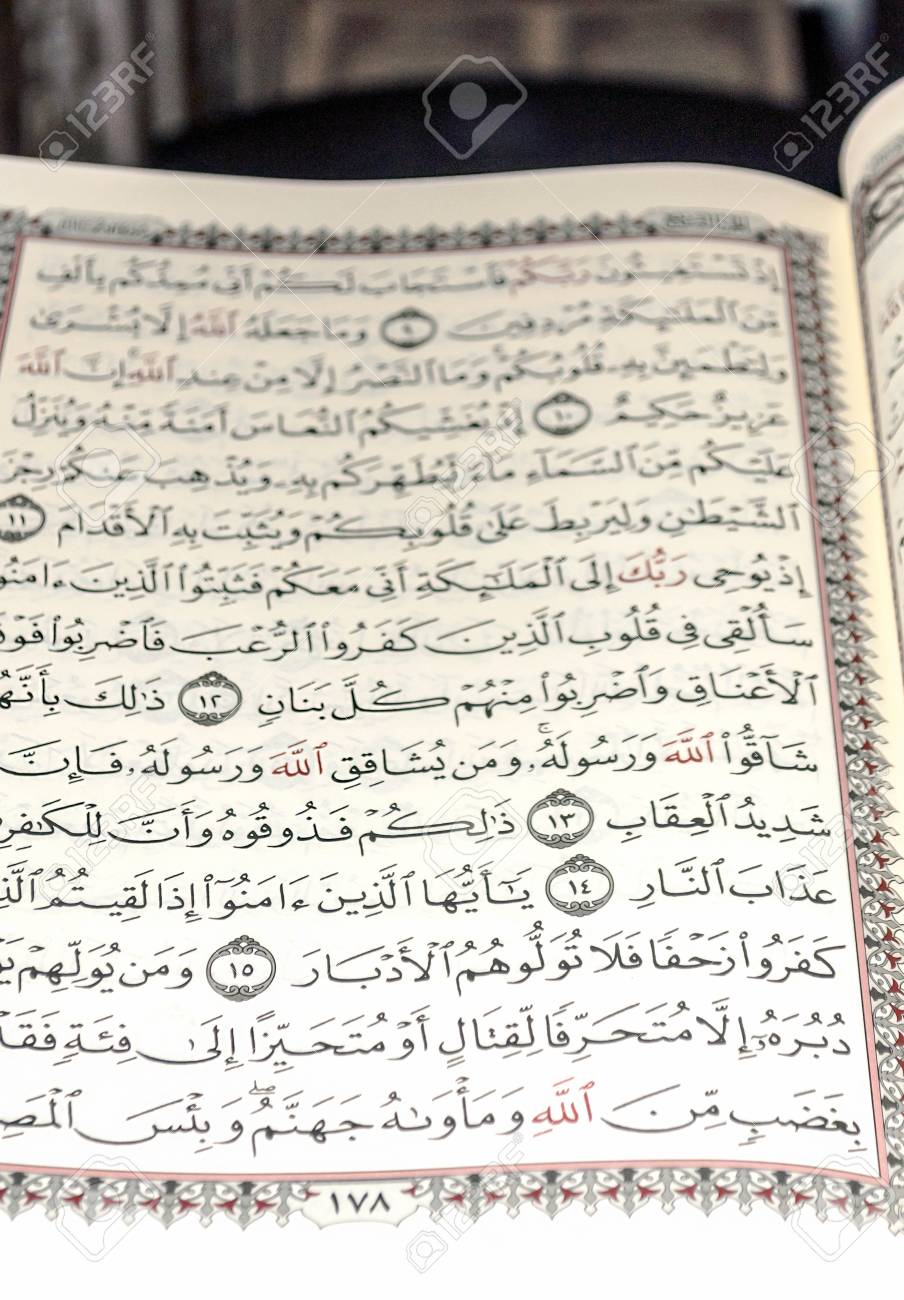 إِذْ تَسْتَغِيثُونَ رَبَّكُمْ فَٱسْتَجَابَ لَكُمْ أَنِّى مُمِدُّكُم بِأَلْفٍ
مِّنَ ٱلْمَلَٰٓئِكَةِ مُرْدِفِينَ ٩ وَمَا جَعَلَهُ ٱللَّهُ إِلَّا بُشْرَىٰ
وَلِتَطْمَئِنَّ بِهِۦ قُلُوبُكُمْ ۚ وَمَا ٱلنَّصْرُ إِلَّا مِنْ عِندِ ٱللَّهِ ۚ إِنَّ ٱللَّهَ
عَزِيزٌ حَكِيمٌ ١٠ إِذْ يُغَشِّيكُمُ ٱلنُّعَاسَ أَمَنَةً مِّنْهُ وَيُنَزِّلُ
عَلَيْكُم مِّنَ ٱلسَّمَآءِ مَآءً لِّيُطَهِّرَكُم بِهِۦ وَيُذْهِبَ عَنكُمْ رِجْزَ
ٱلشَّيْطَٰنِ وَلِيَرْبِطَ عَلَىٰ قُلُوبِكُمْ وَيُثَبِّتَ بِهِ ٱلْأَقْدَامَ ١١
إِذْ يُوحِى رَبُّكَ إِلَى ٱلْمَلَٰٓئِكَةِ أَنِّى مَعَكُمْ فَثَبِّتُوا۟ ٱلَّذِينَ ءَامَنُو
سَأُلْقِى فِى قُلُوبِ ٱلَّذِينَ كَفَرُوا۟ ٱلرُّعْبَ فَٱضْرِبُوا۟ فَوْقَ
ٱلْأَعْنَاقِ وَٱضْرِبُوا۟ مِنْهُمْ كُلَّ بَنَانٍ ١٢ ذَٰلِكَ بِأَنَّهُ
شَآقُّوا۟ ٱللَّهَ وَرَسُولَهُۥ ۚ وَمَن يُشَاقِقِ ٱللَّهَ وَرَسُولَهُۥ فَإِنَّ
شَدِيدُ ٱلْعِقَابِ ١٣ ذَٰلِكُمْ فَذُوقُوهُ وَأَنَّ لِلْكَٰفِرِ
عَذَابَ ٱلنَّارِ ١٤ يَٰٓأَيُّهَا ٱلَّذِينَ ءَامَنُوٓا۟ إِذَا لَقِيتُمُ ٱلَّذِ
كَفَرُوا۟ زَحْفًا فَلَا تُوَلُّوهُمُ ٱلْأَدْبَارَ ١٥ وَمَن يُوَلِّهِمْ يَوْ
دُبُرَهُۥٓ إِلَّا مُتَحَرِّفًا لِّقِتَالٍ أَوْ مُتَحَيِّزًا إِلَىٰ فِئَةٍ فَقَدْ
بِغَضَبٍ مِّنَ ٱللَّهِ وَمَأْوَىٰهُ جَهَنَّمُ ۖ وَبِئْسَ ٱلْمَصِ
١٧٨
123RF